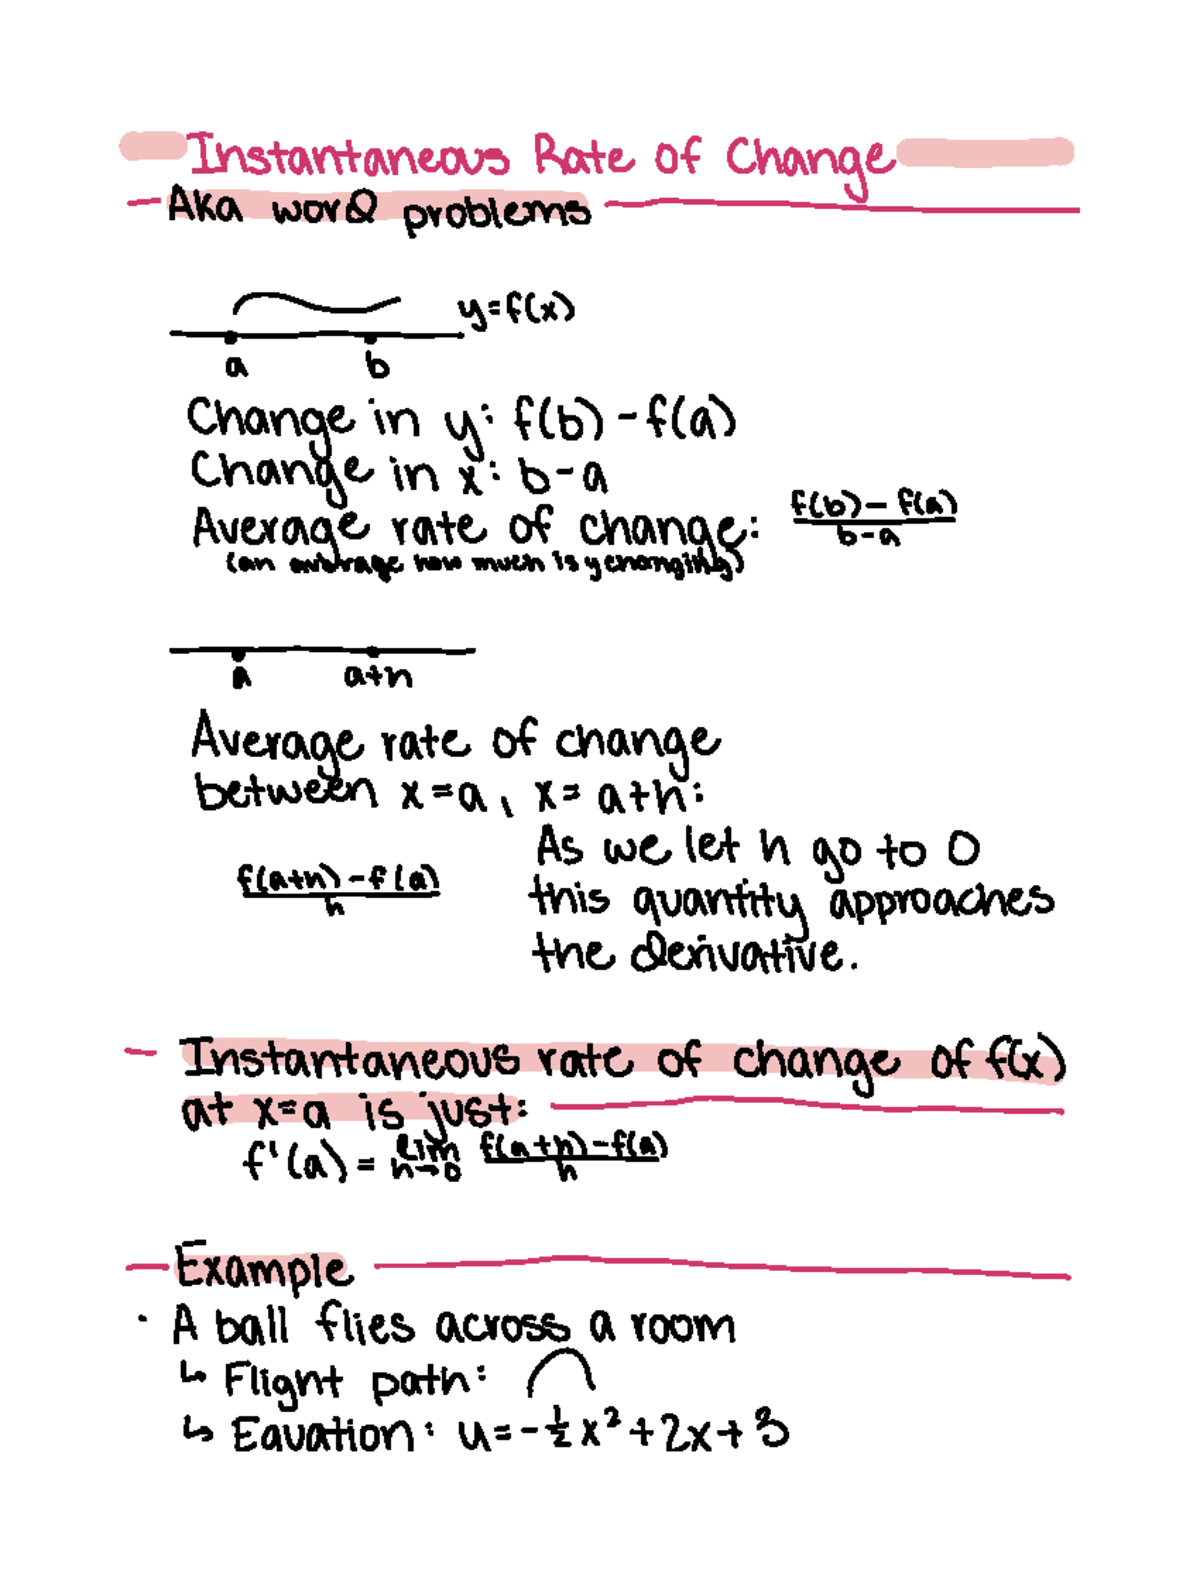 Instantaneous Rate of Change
Aka word problems
y=f(x)
a b
Change in y: f(b)-f(a)
Change in x: b-a
Average rate of change: f(b)-f(a)/b-a
(on average how much is y changing)
a a+h
Average rate of change
between x=a, x=a+h:
f(a+h)-f(a)/h
As we let h go to 0
this quantity approaches
the derivative.
Instantaneous rate of change of f(x)
at x=a is just:
f'(a) = lim h→0 f(a+h)-f(a)/h
Example
· A ball flies across a room
↳ Flight path:
↳ Equation: y=-½x²+2x+3